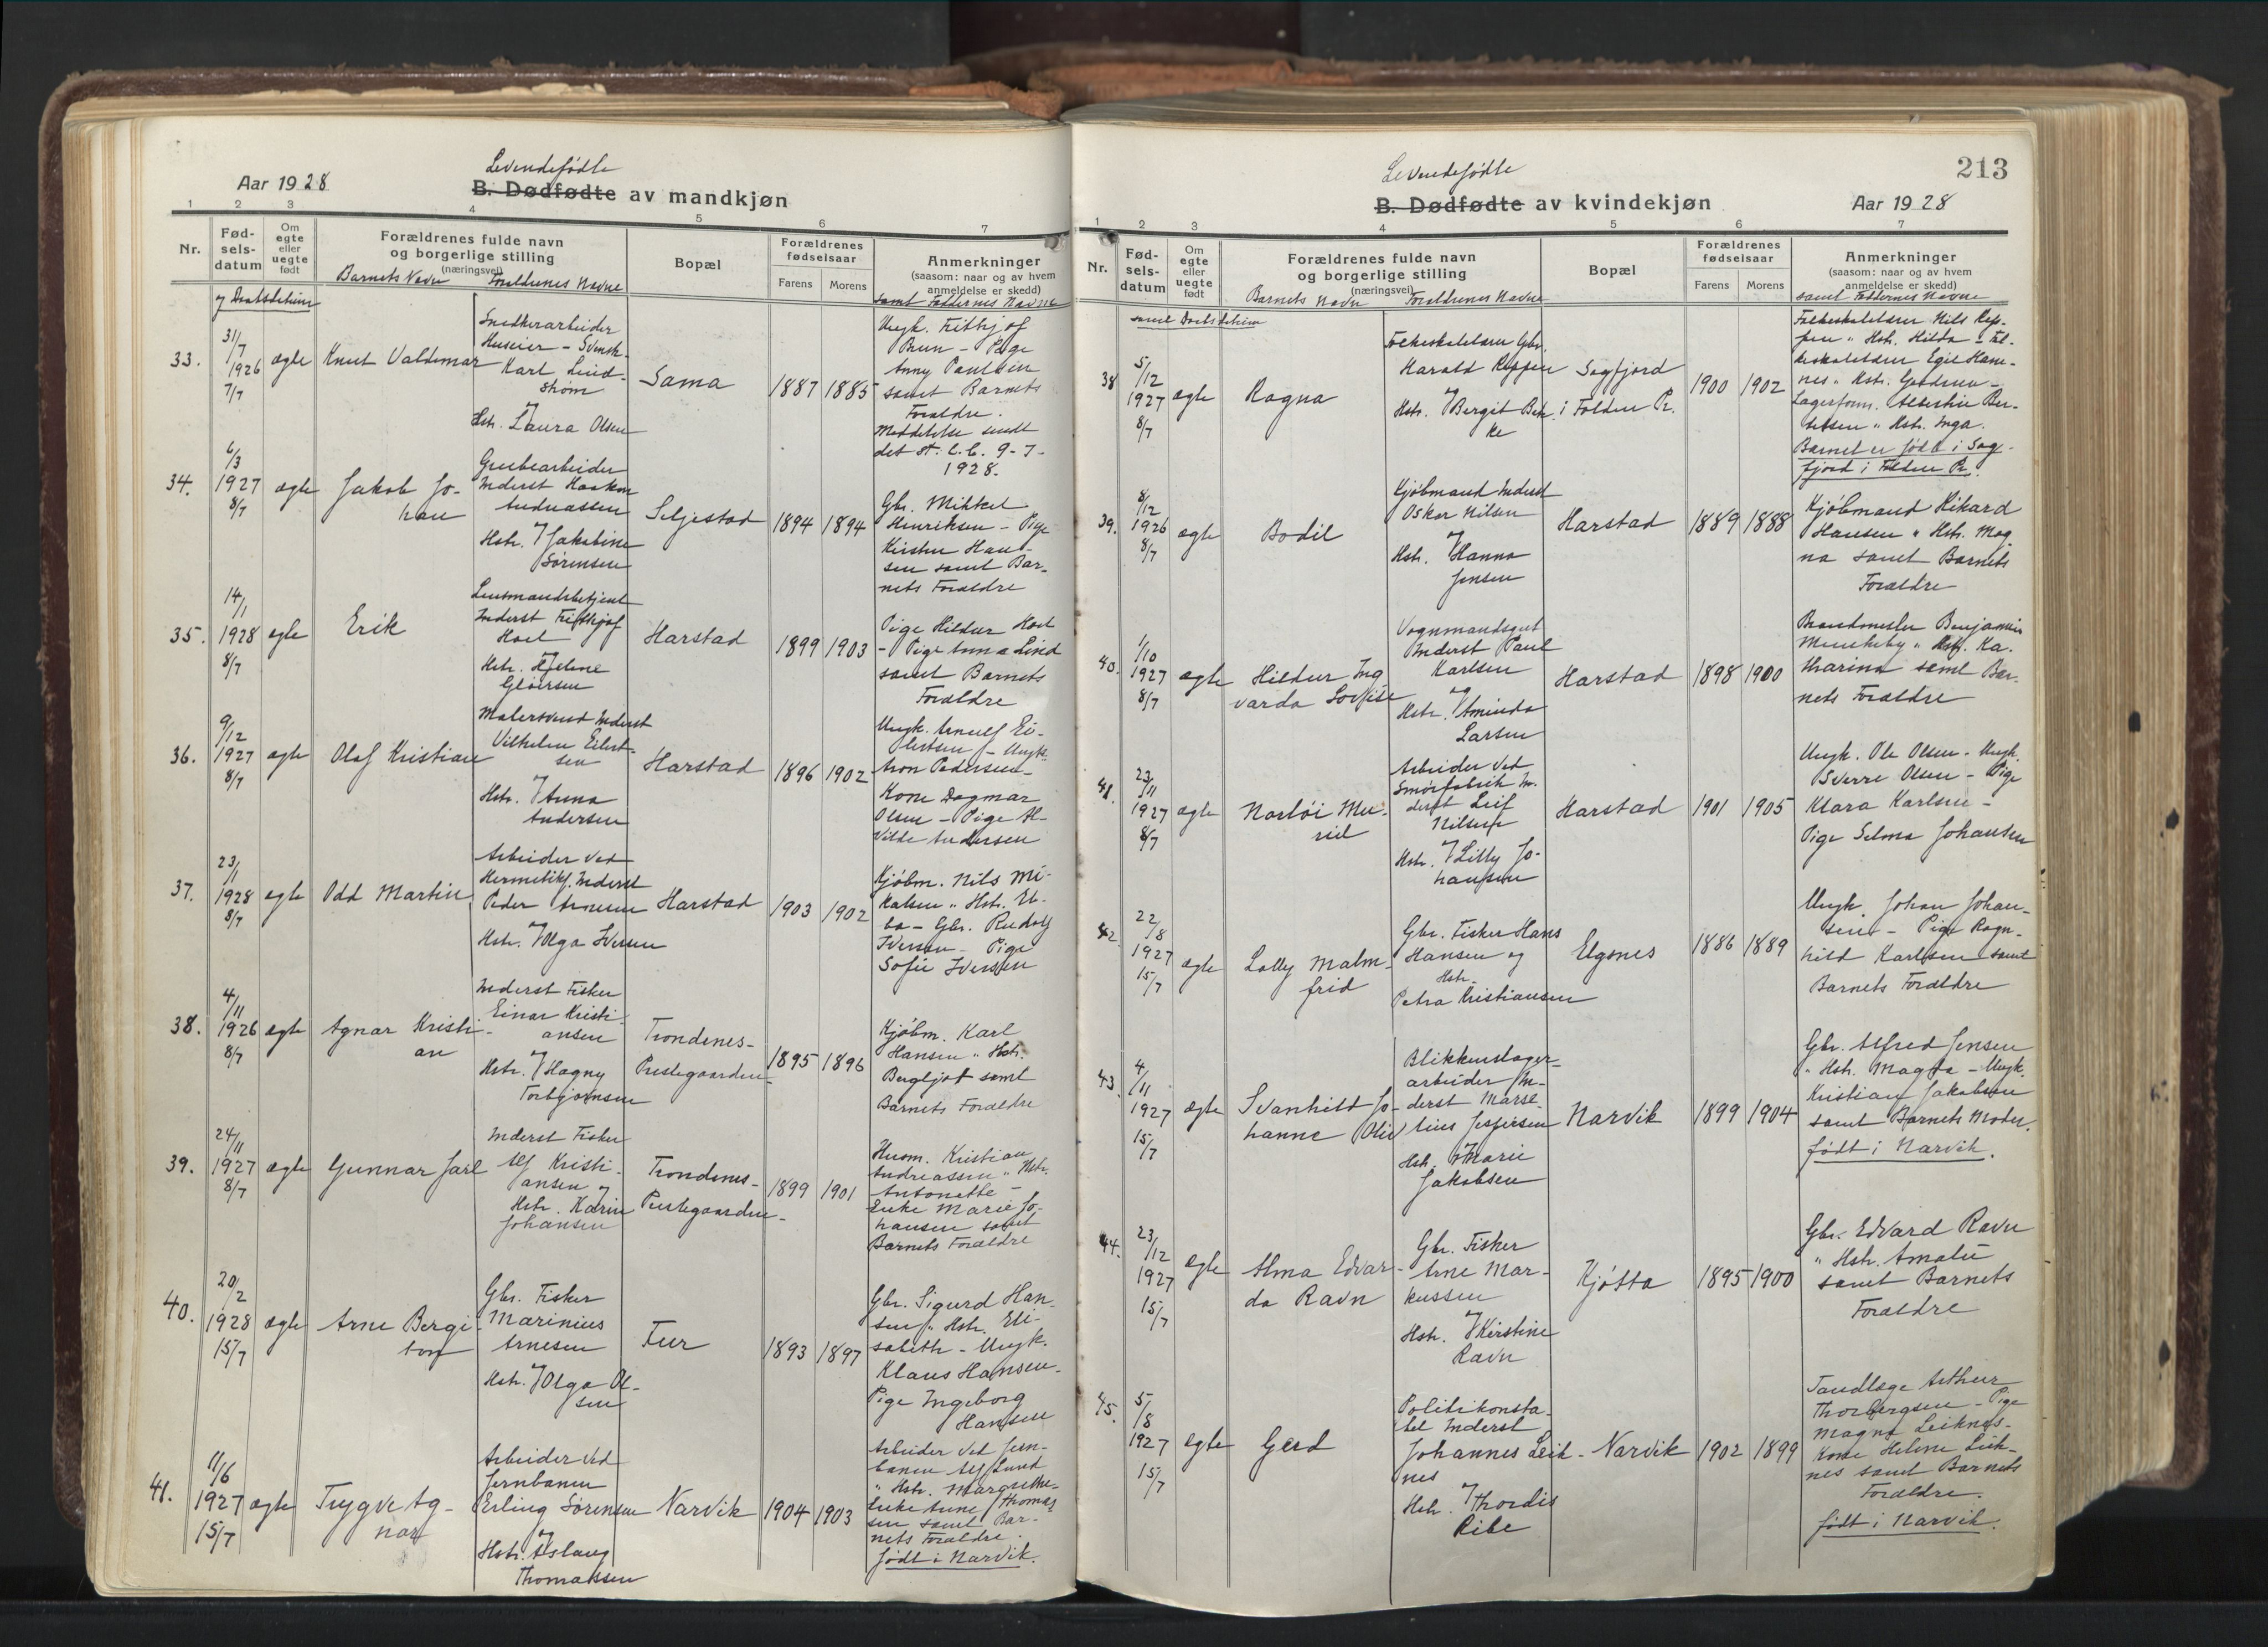 Aar 1928
Levendefødte
B. Dødfødte av mandkjøn
1 2 3 4 5 6 7
Nr.
Fød-
sels-
datum
Om
egte
eller
uegte
født
Forældrenes fulde navn
og borgerlige stilling
(næringsvei)
Barnets Navn Forældrenes Navne
Bopæl
Forældrenes
fødselsaar
Farens Morens
Anmerkninger
(saasom: naar og av hvem
anmeldelse er skedd)
samt Faddernes Navne
og Daabsdatum
33.
31/7
1926
7/7
ægte
Knut Valdemar
Snedkerarbeider
Huseier - Svensk
Karl Lind-
strøm
og
Hstr. Laura Olsen
Sama
1887 1885
Ungk. Fithjof
Brun - Pige
Anny Paulsen
samt Barnets
Forældre.
Meddelelse sendt
det st. C. C. 9-7-
1928.
34.
6/3
1927
8/7
ægte
Jakob Jo-
han
Grubearbeider
Inderst Haakon
Andreassen
og
Hstr. Jakobine
Sørensen
Seljestad
1894 1894
Gbr. Mikkel
Henriksen - Pige
Kirsten Han-
sen samt Bar-
nets Forældre
35.
14/1
1928
8/7
ægte
Erik
Lensmandsbetjent
Inderst Fridthjof
Hoel
og
Hstr. Helene
Gløersen
Harstad
1899 1903
Pige Hildur Hoel
- Pige Anna Lind
samt Barnets
Forældre
36.
9/12
1927
8/7
ægte
Olaf Kristian
Malersvend Inderst
Vilhelm Eilert-
sen
og
Hstr. Anna
Andersen
Harstad
1896 1902
Ungk. Arnulf Ei-
lertsen - Ungk.
Aron Pedersen -
Kone Dagmar
Olsen - Pige Al-
vilde Andersen
37.
23/1
1928
8/7
ægte
Odd Martin
Arbeider ved
Hermetikf. Inderst
Peder Arnesen
og
Hstr. Olga Iversen
Harstad
1903 1902
Kjøbm. Nils Mi-
kalsen " Hstr. Eb-
ba - Gbr. Rudolf
Iversen - Pige
Sofie Iversen
38.
4/11
1926
8/7
ægte
Agnar Kristi-
an
Inderst Fisker
Einar Kristi-
ansen
og
Hstr. Hagny
Torbjørnsen
Trondenes-
Prestegaarden
1895 1896
Kjøbm. Karl
Hansen " Hstr.
Bergljot samt
Barnets Forældre
39.
24/11
1927
8/7
ægte
Gunnar Jarl
Inderst Fisker
Alf Kristi-
ansen og
Hstr. Karin
Johansen
Trondenes-
Prestegaarden
1899 1901
Husm. Kristian
Andreassen " Hstr.
Antonette -
Enke Marie Jo-
hansen samt
Barnets Forældre
40.
20/2
1928
15/7
ægte
Arne Bergi-
ton
Gbr. Fisker
Marinius
Arnesen
og
Hstr. Olga Ol-
sen
Fur
1893 1897
Gbr. Sigurd Han-
sen " Hstr. Eli-
sabeth - Ungk.
Klaus Hansen -
Pige Ingeborg
Hansen
41.
11/6
1927
15/7
ægte
Trygve Ag-
nar
Arbeider ved
Jernbanen
Erling Sørensen
og
Hstr. Aslaug
Thomassen
Narvik
1904 1903
Arbeider ved Jern-
banen Alf Lund
" Hstr. Margrethe -
Enke Anne Thomas-
sen samt Bar-
nets Forældre.
født i Narvik.
213
Levendefødte
B. Dødfødte av kvindekjøn
Aar 1928
1 2 3 4 5 6 7
Nr.
Fød-
sels-
datum
Om
egte
eller
uegte
født
Forældrenes fulde navn
og borgerlige stilling
(næringsvei)
Barnets Navn Forældrenes Navne
Bopæl
Forældrenes
fødselsaar
Farens Morens
Anmerkninger
(saasom: naar og av hvem
anmeldelse er skedd)
samt Faddernes Navne
samt Daabsdatum
38
5/12
1927
8/7
ægte
Ragna
Folkeskolelærer Gbr.
Harald Reppen
og
Hstr. Bergit Bek-
ke
Sagfjord
i Folden Pr.
1900 1902
Folkeskolelærer Nils Rep-
pen " Hstr. Hilda - Fol-
keskolelærer Egil Ham-
nes " Hstr. Gudrun -
Lagerform. Albertin Ber-
telsen " Hstr. Inga.
Barnet er født i Sag-
fjord i Folden Pr.
39.
8/12
1926
8/7
ægte
Bodil
Kjøbmand Inderst
Oskar Nilsen
og
Hstr. Hanna
Jensen
Harstad
1889 1888
Kjøbmand Rikard
Hansen " Hstr. Mag-
na samt Barnets
Forældre
40.
1/10
1927
8/7
ægte
Hildur Ing-
varda Lovise
Vognmandsgut
Inderst Paul
Karlsen
og
Hstr. Aminda
Larsen
Harstad
1898 1900
Brandmester Benjamin
Munkeby " Hstr. Ka-
tharina samt Bar-
nets Forældre
41.
23/11
1927
8/7
ægte
Mu-
riel
Arbeider ved
Smørfabrik In-
derst Leif
Nilsen
og
Hstr. Lilly Jo-
hansen
Harstad
1901 1905
Ungk. Ole Olsen - Ungk.
Sverre Olsen - Pige
Klara Karlsen -
Pige Selma Johansen
42.
22/8
1927
15/7
ægte
Lolly Malm-
frid
Gbr. Fisker Hans
Hansen og
Hstr.
Petra Kristiansen
Elgsnes
1886 1889
Ungk. Johan Johan-
sen - Pige Ragn-
hild Karlsen samt
Barnets Forældre
43.
4/11
1927
15/7
ægte
Svanhild Jo-
hanne Oliv
Blikkenslager-
arbeider In-
derst Marse-
lius Jespersen
og
Hstr. Marie
Jakobsen
Narvik
1899 1904
Gbr. Alfred Jensen
" Hstr. Magda - Ungk.
Kristian Jakobsen
samt Barnets Moder.
født i Narvik.
44.
23/12
1927
15/7
ægte
Alma Edvar-
da Ravn
Gbr. Fisker
Arne Mar-
kussen
og
Hstr. Kirstine
Ravn
Kjøtta
1895 1900
Gbr. Edvard Ravn
" Hstr. Amalie
samt Barnets
Forældre
45.
5/8
1927
15/7
ægte
Gerd
Politikonsta-
bel Inderst
Johannes Leik-
nes
og
Hstr. Thordis
Ribe
Narvik
1902 1899
Tandlæge Arthur
Thorbergsen - Pige
Magna Leiknes -
Kone Helene Leik-
nes samt Barnets
Forældre.
født i Narvik.